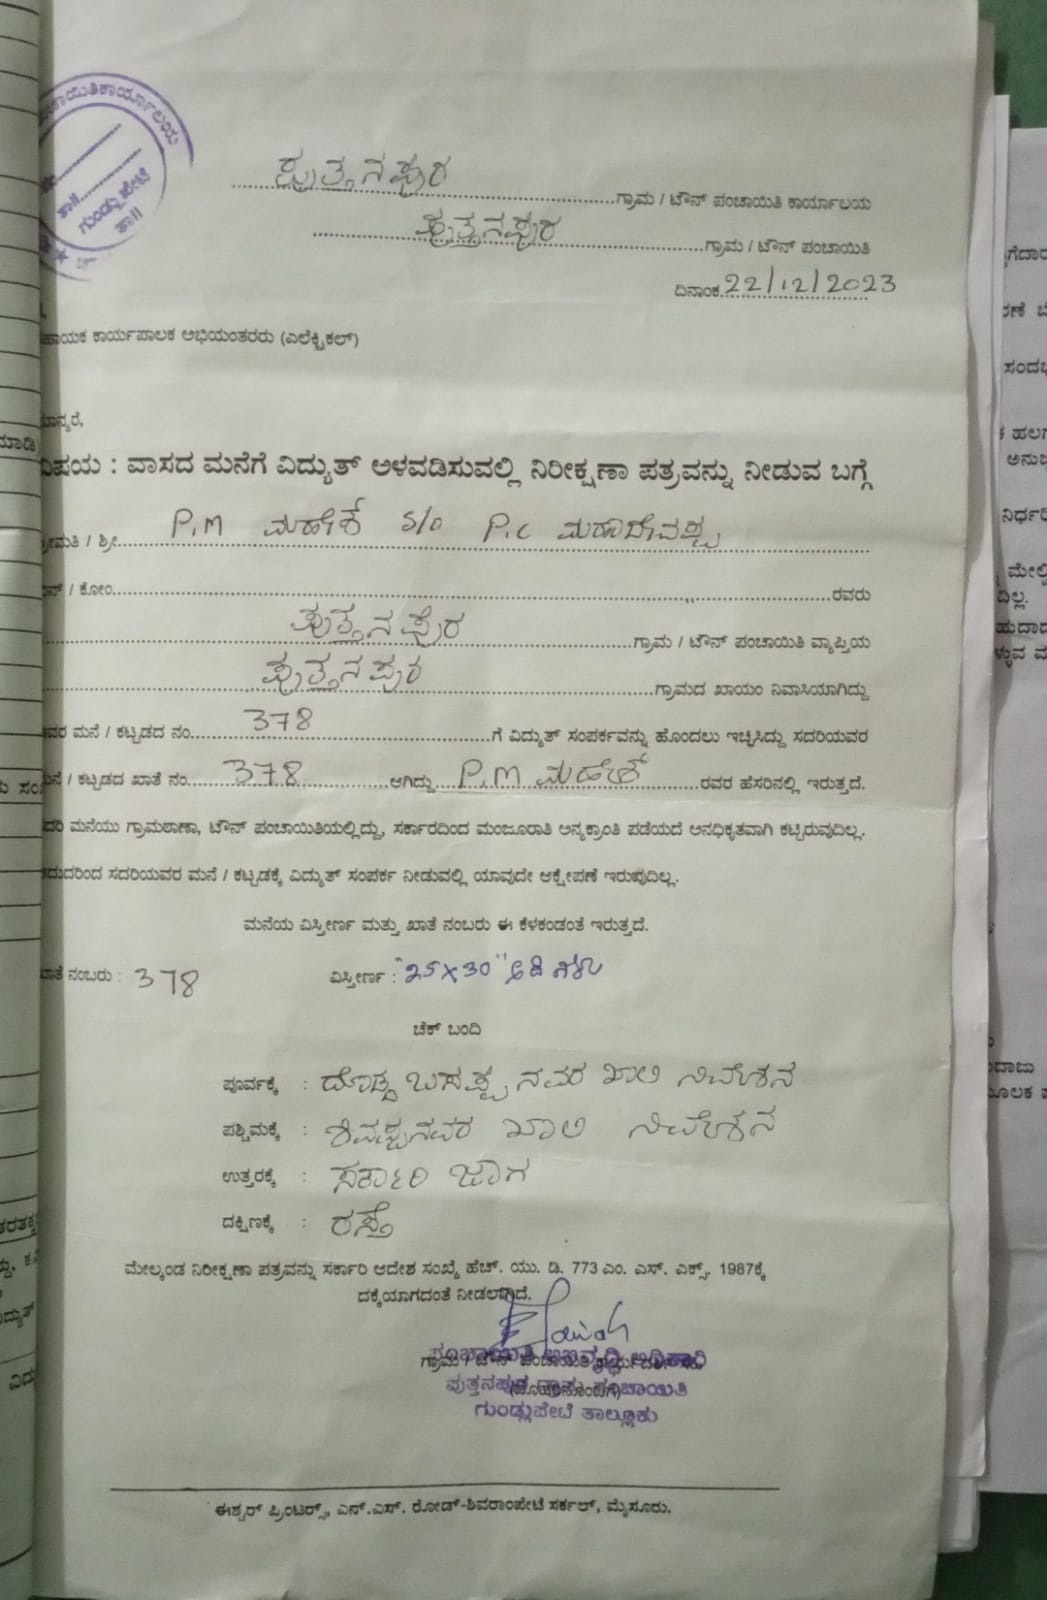 ಕಾಯಿತಿಕಾರ್ಯಾಲಯ
ತಾ॥
ಗುಂಡ್ಲುಪೇಟೆ
ತಾ॥
ಪುತ್ತನಪುರ ಗ್ರಾಮ / ಟೌನ್ ಪಂಚಾಯಿತಿ ಕಾರ್ಯಾಲಯ
ಪುತ್ತನಪುರ ಗ್ರಾಮ / ಟೌನ್ ಪಂಚಾಯಿತಿ
ದಿನಾಂಕ 22/12/2023
ಹಾಯಕ ಕಾರ್ಯಪಾಲಕ ಅಭಿಯಂತರರು (ಎಲೆಕ್ಟ್ರಿಕಲ್)
ಮಾನ್ಯರೆ,
ವಿಷಯ : ವಾಸದ ಮನೆಗೆ ವಿದ್ಯುತ್ ಅಳವಡಿಸುವಲ್ಲಿ ನಿರೀಕ್ಷಣಾ ಪತ್ರವನ್ನು ನೀಡುವ ಬಗ್ಗೆ
ಶ್ರೀಮತಿ / ಶ್ರೀ P.M ಮಹೇಶ್ S/O P.C ಮಹಾದೇವಪ್ಪ
ಬಿನ್ / ಕೋಂ ರವರು
ಪುತ್ತನಪುರ ಗ್ರಾಮ / ಟೌನ್ ಪಂಚಾಯಿತಿ ವ್ಯಾಪ್ತಿಯ
ಪುತ್ತನಪುರ ಗ್ರಾಮದ ಖಾಯಂ ನಿವಾಸಿಯಾಗಿದ್ದು
ಇವರ ಮನೆ / ಕಟ್ಟಡದ ನಂ. 378 ಗೆ ವಿದ್ಯುತ್ ಸಂಪರ್ಕವನ್ನು ಹೊಂದಲು ಇಚ್ಛಿಸಿದ್ದು ಸದರಿಯವರ
ಮನೆ / ಕಟ್ಟಡದ ಖಾತೆ ನಂ. 378 ಆಗಿದ್ದು P.M ಮಹೇಶ್ ರವರ ಹೆಸರಿನಲ್ಲಿ ಇರುತ್ತದೆ.
ದರಿ ಮನೆಯು ಗ್ರಾಮಠಾಣಾ, ಟೌನ್ ಪಂಚಾಯಿತಿಯಲ್ಲಿದ್ದು, ಸರ್ಕಾರದಿಂದ ಮಂಜೂರಾತಿ ಅನ್ಯಕ್ರಾಂತಿ ಪಡೆಯದೆ ಅನಧಿಕೃತವಾಗಿ ಕಟ್ಟಿರುವುದಿಲ್ಲ.
ದುದರಿಂದ ಸದರಿಯವರ ಮನೆ / ಕಟ್ಟಡಕ್ಕೆ ವಿದ್ಯುತ್ ಸಂಪರ್ಕ ನೀಡುವಲ್ಲಿ ಯಾವುದೇ ಆಕ್ಷೇಪಣೆ ಇರುವುದಿಲ್ಲ.
ಮನೆಯ ವಿಸ್ತೀರ್ಣ ಮತ್ತು ಖಾತೆ ನಂಬರು ಈ ಕೆಳಕಂಡಂತೆ ಇರುತ್ತದೆ.
ಖಾತೆ ನಂಬರು : 378 ವಿಸ್ತೀರ್ಣ : "25X30" ಅಡಿಗಳು
ಚೆಕ್ ಬಂದಿ
ಪೂರ್ವಕ್ಕೆ : ದೊಡ್ಡ ಬಸಪ್ಪನವರ ಖಾಲಿ ನಿವೇಶನ
ಪಶ್ಚಿಮಕ್ಕೆ : ಶಿವಪ್ಪನವರ ಖಾಲಿ ನಿವೇಶನ
ಉತ್ತರಕ್ಕೆ : ಸರ್ಕಾರಿ ಜಾಗ
ದಕ್ಷಿಣಕ್ಕೆ : ರಸ್ತೆ
ಮೇಲ್ಕಂಡ ನಿರೀಕ್ಷಣಾ ಪತ್ರವನ್ನು ಸರ್ಕಾರಿ ಆದೇಶ ಸಂಖ್ಯೆ ಹೆಚ್. ಯು. ಡಿ. 773 ಎಂ. ಎಸ್. ಎಕ್ಸ್. 1987ಕ್ಕೆ
ದಕ್ಕೆಯಾಗದಂತೆ ನೀಡಲಾಗಿದೆ.
ಪಂಚಾಯಿತಿ ಅಭಿವೃದ್ಧಿ ಅಧಿಕಾರಿ
ಗ್ರಾಮ / ಟೌನ್ ಪಂಚಾಯಿತಿ
ಪುತ್ತನಪುರ ಗ್ರಾಮ ಪಂಚಾಯಿತಿ
ಗುಂಡ್ಲುಪೇಟೆ ತಾಲ್ಲೂಕು
ಈಶ್ವರ್ ಪ್ರಿಂಟರ್ಸ್, ಎನ್.ಎಸ್. ರೋಡ್-ಶಿವರಾಂಪೇಟೆ ಸರ್ಕಲ್, ಮೈಸೂರು.